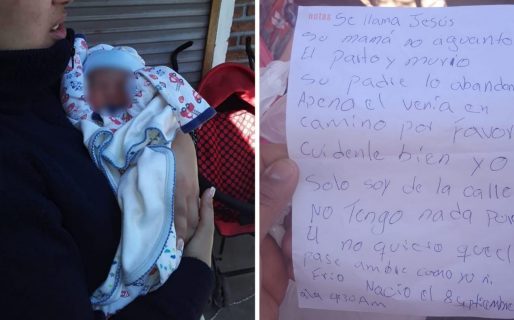 notas Se llama Jesús
su mamá no aguanto
El parto y murio
Su padre lo aban
Apena el venia en
camino por favor
Cuidenle bien yo
Solo soy de la calle
No Tengo nada Par
no quiero que el
pase ambre como yo ni
Frio Nacio el 8 septiembre
4:30 Am